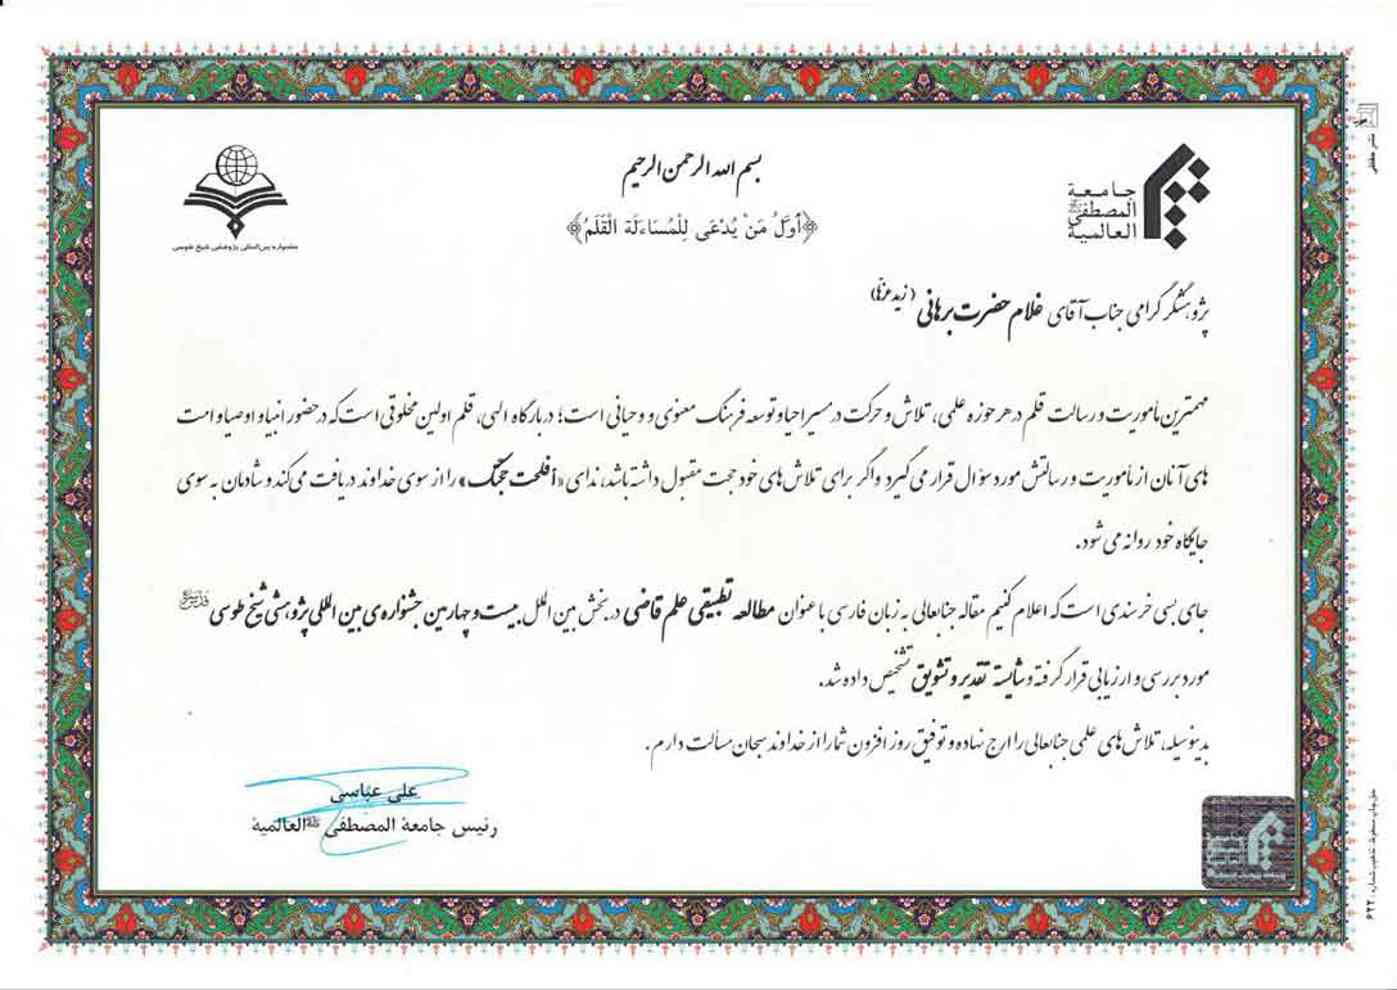 بسم الله الرحمن الرحیم
﴿أَوَّلُ مَنْ يُدْعَى لِلْمُسَاءَلَة الْقَلَمُ﴾
جامعة
المصطفی
العالمیة
جشنواره بین‌المللی پژوهشی شیخ طوسی
پژوهشگر گرامی جناب آقای غلام حضرت برهانی (زید عزه)
مهمترین مأموریت و رسالت قلم در هر حوزه علمی، تلاش و حرکت در مسیر احیا و توسعه فرهنگ معنوی و وحیانی است؛ در بارگاه الهی، قلم اولین مخلوقی است که در حضور انبیا و اوصیا و امت
های آنان از مأموریت و رسالتش مورد سؤال قرار می گیرد و اگر برای تلاش های خود حجت مقبول داشته باشد، ندای «أفلحت حجتک» را از سوی خداوند دریافت می کند و شادمان به سوی
جایگاه خود روانه می شود.
جای بسی خرسندی است که اعلام کنیم مقاله جنابعالی به زبان فارسی با عنوان مطالعه تطبیقی علم قاضی در بخش بین الملل بیست و چهارمین جشنواره‌ی بین المللی پژوهشی شیخ طوسی
مورد بررسی و ارزیابی قرار گرفته و شایسته تقدیر و تشویق تشخیص داده شد.
بدینوسیله، تلاش های علمی جنابعالی را ارج نهاده و توفیق روز افزون شما را از خداوند سبحان مسألت دارم.
علی عبّاسی
رئیس جامعة المصطفی العالمیة